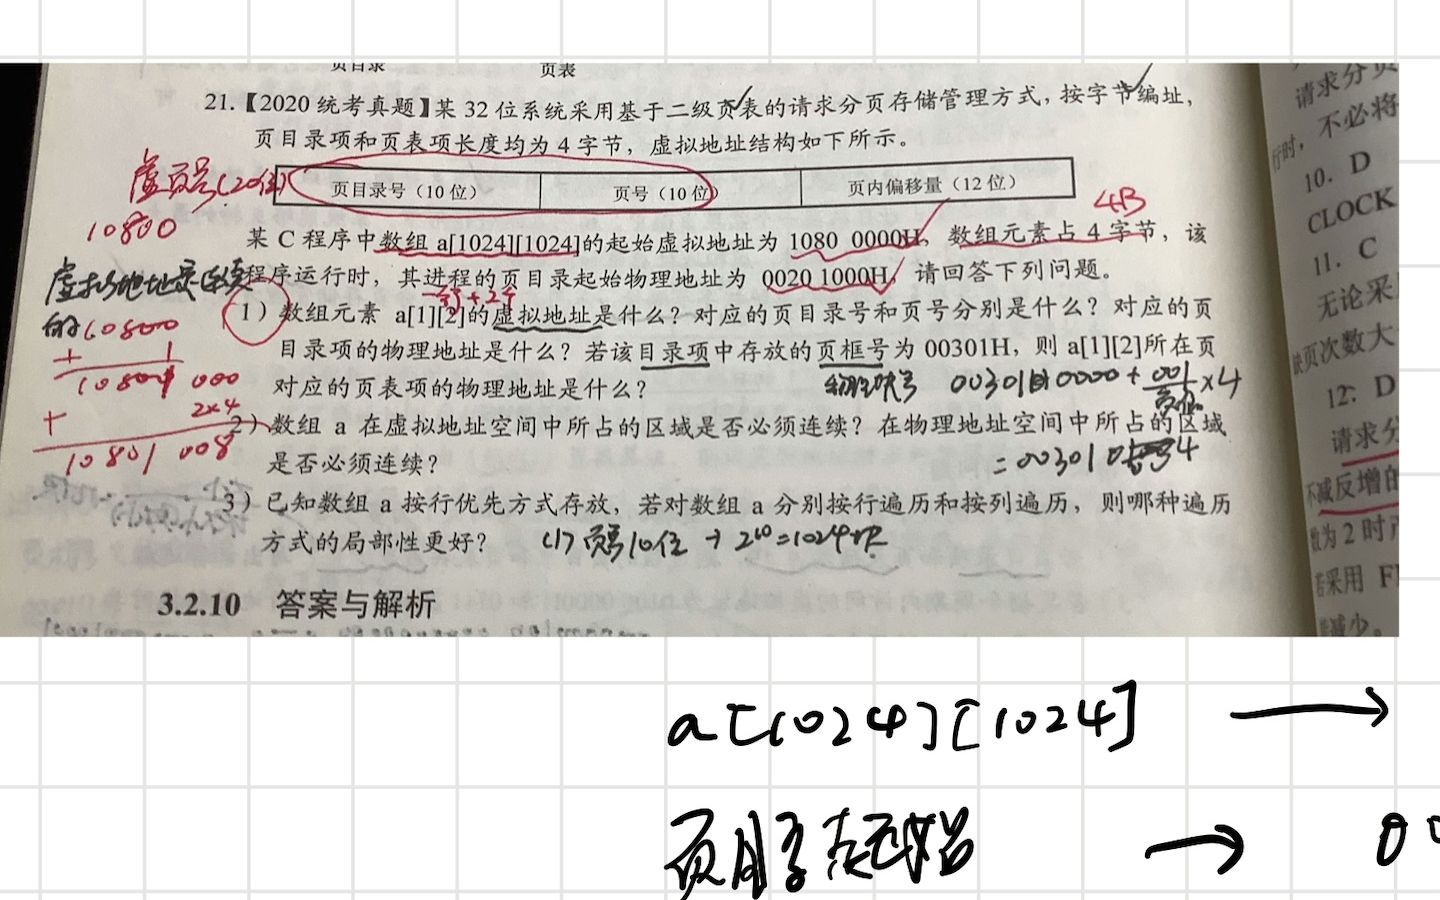 页目录 页表
21.【2020 统考真题】某 32 位系统采用基于二级页表的请求分页存储管理方式，按字节编址，
页目录项和页表项长度均为 4 字节，虚拟地址结构如下所示。
虚页号(20位)
页目录号（10 位） 页号（10 位） 页内偏移量（12 位）
10800
4B
某 C 程序中数组 a[1024][1024]的起始虚拟地址为 1080 0000H，数组元素占 4 字节，该
虚拟地址是连续
程序运行时，其进程的页目录起始物理地址为 0020 1000H，请回答下列问题。
的10800
1）数组元素 a[1][2]的虚拟地址是什么？对应的页目录号和页号分别是什么？对应的页
+ 1
目录项的物理地址是什么？若该目录项中存放的页框号为 00301H，则 a[1][2]所在页
10801 000
对应的页表项的物理地址是什么？
物理块号 00301 0000 + 001 ×4
+ 2×4
2）数组 a 在虚拟地址空间中所占的区域是否必须连续？在物理地址空间中所占的区域
10801 008
是否必须连续？
3）已知数组 a 按行优先方式存放，若对数组 a 分别按行遍历和按列遍历，则哪种遍历
方式的局部性更好？
(1) 页号10位 → 2^10=1024
3.2.10 答案与解析
请求分页
不必将
行时，
10. D
CLOCK
11. C
无论采
缺页次数大
12. D
请求分
不减反增的
数为 2 时产
若采用 FI
减少。
a[1024][1024] →
页目录起始 → 00